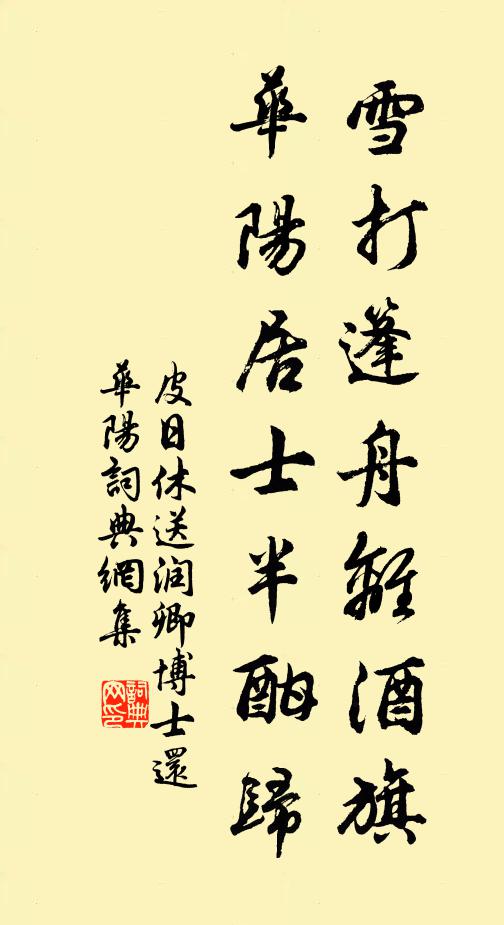 雪打篷舟離酒旗
華陽居士半酣歸
皮日休送润卿博士還
華陽詞典網集
詞典
网印